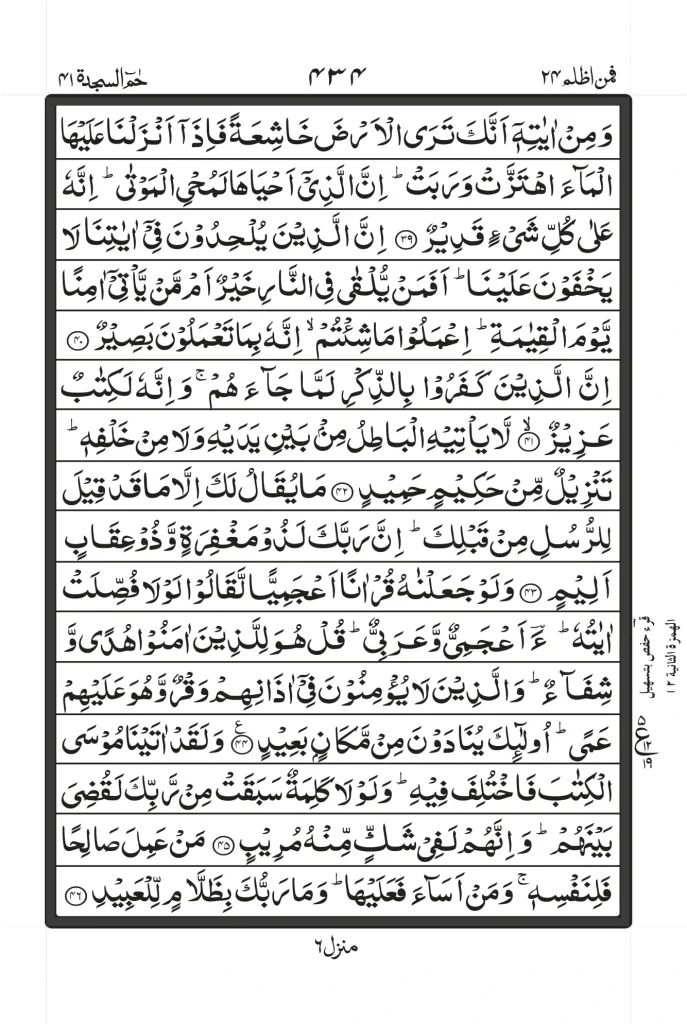 فمن اظلم ۲۴
۴۳۴
حٰمٓ السجدة ۴۱
وَمِنْ اٰیٰتِهٖۤ اَنَّكَ تَرَی الْاَرْضَ خَاشِعَةً فَاِذَاۤ اَنْزَلْنَا عَلَیْهَا
الْمَآءَ اهْتَزَّتْ وَرَبَتْ ؕ اِنَّ الَّذِیْۤ اَحْیَاهَا لَمُحْیِ الْمَوْتٰی ؕ اِنَّهٗ
عَلٰی كُلِّ شَیْءٍ قَدِیْرٌ ﴿۳۹﴾ اِنَّ الَّذِیْنَ یُلْحِدُوْنَ فِیْۤ اٰیٰتِنَا لَا
یَخْفَوْنَ عَلَیْنَا ؕ اَفَمَنْ یُّلْقٰی فِی النَّارِ خَیْرٌ اَمْ مَّنْ یَّاْتِیْۤ اٰمِنًا
یَّوْمَ الْقِیٰمَةِ ؕ اِعْمَلُوْا مَا شِئْتُمْ ۙ اِنَّهٗ بِمَا تَعْمَلُوْنَ بَصِیْرٌ ﴿۴۰﴾
اِنَّ الَّذِیْنَ كَفَرُوْا بِالذِّكْرِ لَمَّا جَآءَهُمْ ۚ وَاِنَّهٗ لَكِتٰبٌ
عَزِیْزٌ ﴿ۙ۴۱﴾ لَّا یَاْتِیْهِ الْبَاطِلُ مِنْۢ بَیْنِ یَدَیْهِ وَلَا مِنْ خَلْفِهٖ ؕ
تَنْزِیْلٌ مِّنْ حَكِیْمٍ حَمِیْدٍ ﴿۴۲﴾ مَا یُقَالُ لَكَ اِلَّا مَا قَدْ قِیْلَ
لِلرُّسُلِ مِنْ قَبْلِكَ ؕ اِنَّ رَبَّكَ لَذُوْ مَغْفِرَةٍ وَّذُوْ عِقَابٍ
اَلِیْمٍ ﴿۴۳﴾ وَلَوْ جَعَلْنٰهُ قُرْاٰنًا اَعْجَمِیًّا لَّقَالُوْا لَوْلَا فُصِّلَتْ
اٰیٰتُهٗ ؕ ءَؔاَعْجَمِیٌّ وَّعَرَبِیٌّ ؕ قُلْ هُوَ لِلَّذِیْنَ اٰمَنُوْا هُدًی وَّ
شِفَآءٌ ؕ وَالَّذِیْنَ لَا یُؤْمِنُوْنَ فِیْۤ اٰذَانِهِمْ وَقْرٌ وَّهُوَ عَلَیْهِمْ
عَمًی ؕ اُولٰٓىِٕكَ یُنَادَوْنَ مِنْ مَّكَانٍۭ بَعِیْدٍ ﴿۴۴﴾ وَلَقَدْ اٰتَیْنَا مُوْسَی
الْكِتٰبَ فَاخْتُلِفَ فِیْهِ ؕ وَلَوْلَا كَلِمَةٌ سَبَقَتْ مِنْ رَّبِّكَ لَقُضِیَ
بَیْنَهُمْ ؕ وَاِنَّهُمْ لَفِیْ شَكٍّ مِّنْهُ مُرِیْبٍ ﴿۴۵﴾ مَنْ عَمِلَ صَالِحًا
فَلِنَفْسِهٖ ۚ وَمَنْ اَسَآءَ فَعَلَیْهَا ؕ وَمَا رَبُّكَ بِظَلَّامٍ لِّلْعَبِیْدِ ﴿۴۶﴾
قرء حفص بتسهيل
الهمزة الثانية ۱۲
منزل ۶